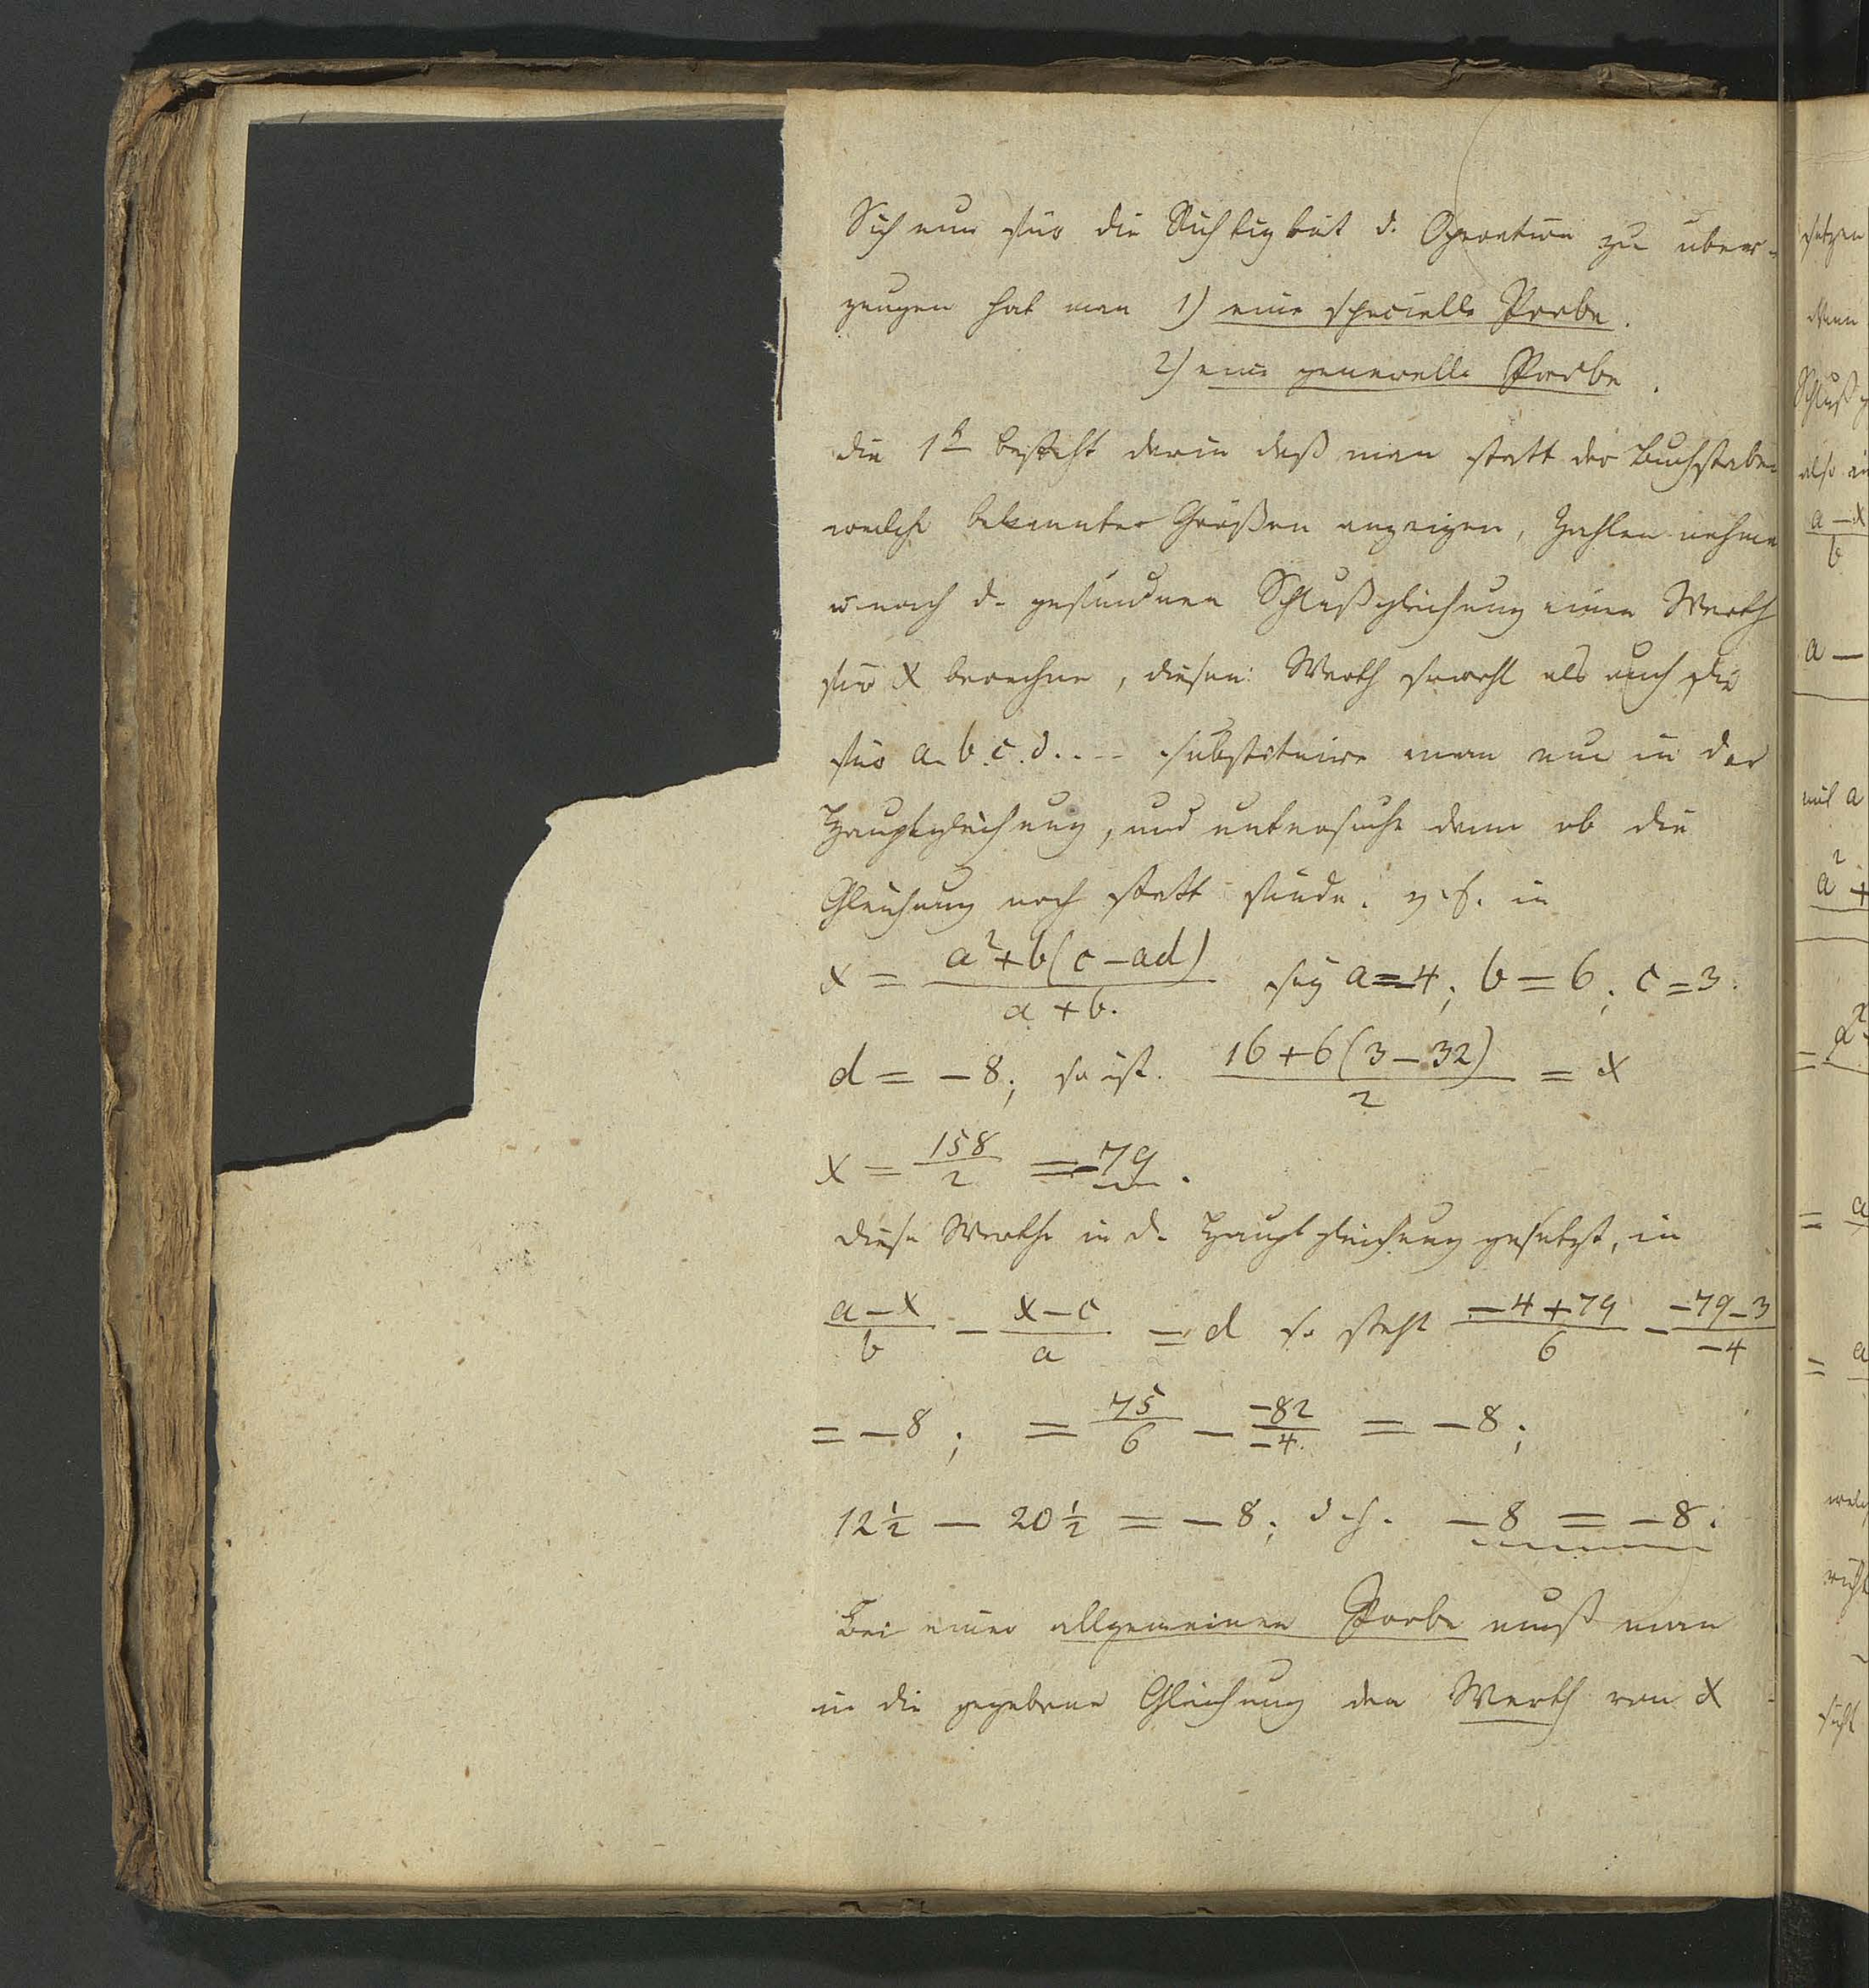 Sich nun für die Richtigkeit d. Operation zu über-
zeugen hat man 1) eine specielle Probe.
2) eine generelle Probe.
die 1t besteht darin daß man statt der Buchstaben
welche bekannte Größen anzeigen, Zahlen nehme
u nach d. gefundnen Schlußgleichung einen Werth
für x berechne, diesen Werth sowohl als auch die
für a. b. c. d. . . . substituire man nun in der
Hauptgleichung, und untersuche dann ob die
Gleichung noch statt finde. z. b. in
x = a²+b(c-ad) / a+b. sey a=-4; b=6; c=3.
d = -8; so ist. 16+6(3-32) / 2 = x
x = 158/2 = -79.
diese Werthe in d. Hauptgleichung gesetzt, in
a-x / b - x-c / a = d so steht -4+79 / 6 - -79-3 / -4
= -8; = 75/6 - -82/-4. = -8;
12½ - 20½ = -8; d. h. -8 = -8.
Bei einer allgemeinen Probe muß man
in die gegebene Gleichung den Werth von x
setzen
Schluß
also
a-x
b
a -
mit a
a² +
= a²
= a
= a